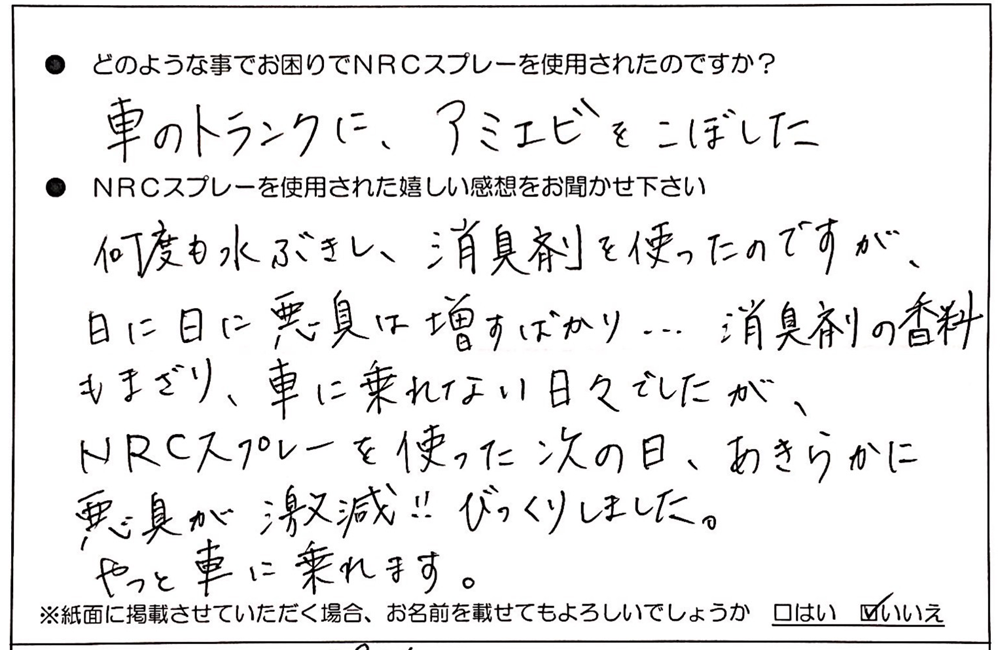 ● どのような事でお困りでNRCスプレーを使用されたのですか？
車のトランクに、アミエビをこぼした
● NRCスプレーを使用された嬉しい感想をお聞かせ下さい
何度も水ぶきし、消臭剤を使ったのですが、
日に日に悪臭は増すばかり… 消臭剤の香料
もまざり、車に乗れない日々でしたが、
NRCスプレーを使った次の日、あきらかに
悪臭が激減!! びっくりしました。
やっと車に乗れます。
※紙面に掲載させていただく場合、お名前を載せてもよろしいでしょうか □はい ☑いいえ